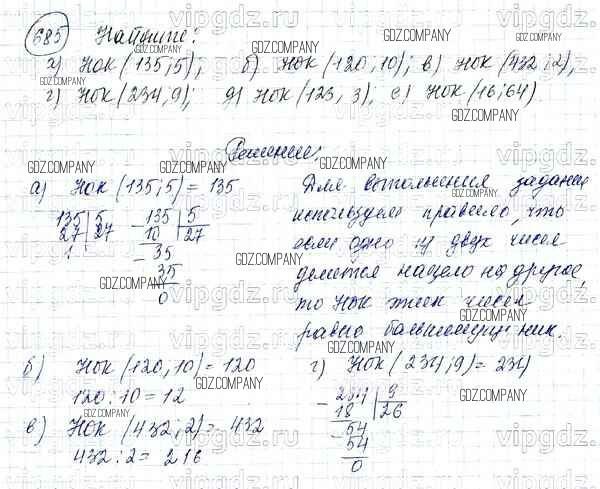 685 Найдите:
а) НОК (135; 5); б) НОК (120; 10); в) НОК (432; 2),
г) НОК (234, 9); д) НОК (123, 3), е) НОК (16; 64)
Решение:
а) НОК (135; 5) = 135
135 | 5
27 | 27
1
- 135 | 5
10 | 27
- 35
35
0
Для выполнения задания
используем правило, что
если одно из двух чисел
делится нацело на другое,
то НОК этих чисел
равно большему из них.
б) НОК (120, 10) = 120
120 : 10 = 12
в) НОК (432; 2) = 432
432 : 2 = 216
г) НОК (234; 9) = 234
- 234 | 9
18 | 26
- 54
54
0
GDZ.COMPANY
vipgdz.ru